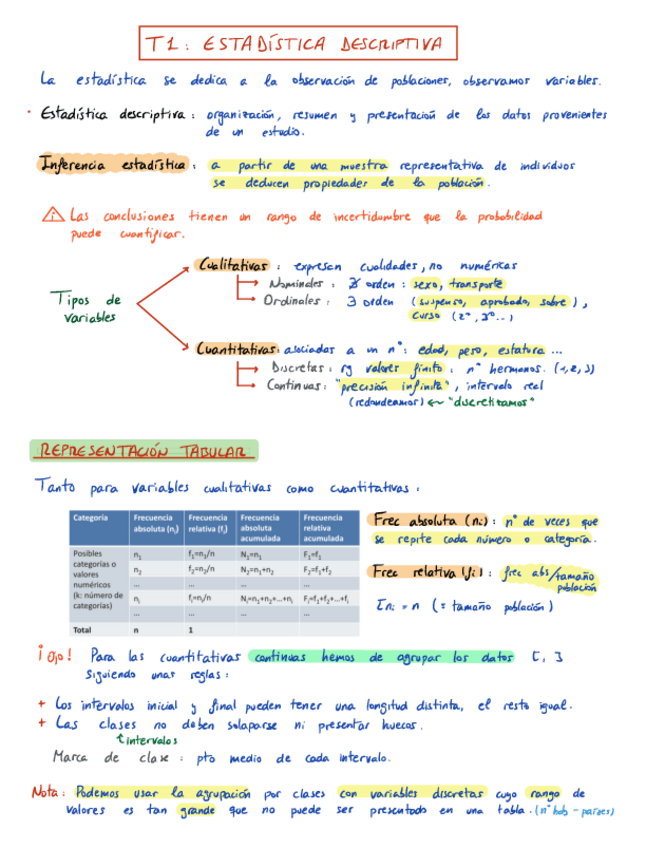 T1: ESTADÍSTICA DESCRIPTIVA
La estadística se dedica a la observación de poblaciones, observamos variables.
· Estadística descriptiva: organización, resumen y presentación de los datos provenientes
de un estudio.
Inferencia estadística: a partir de una muestra representativa de individuos
se deducen propiedades de la población.
⚠ Las conclusiones tienen un rango de incertidumbre que la probabilidad
puede cuantificar.
Tipos de
variables
Cualitativas: expresan cualidades, no numéricas
Nominales: ∄ orden: sexo, transporte
Ordinales: ∃ orden (suspenso, aprobado, sobre),
curso (2º, 3º...)
Cuantitativas: asociadas a un nº: edad, peso, estatura ...
Discretas: valores finito: nº hermanos. (1, 2, 3)
Continuas: "precisión infinita", intervalo real
(redondeamos) ← "discretizamos"
REPRESENTACIÓN TABULAR
Tanto para variables cualitativas como cuantitativas:
Categoría | Frecuencia absoluta (ni) | Frecuencia relativa (fi) | Frecuencia absoluta acumulada | Frecuencia relativa acumulada
Posibles categorías o valores numéricos (k: número de categorías)
n1 | f1=n1/n | N1=n1 | F1=f1
n2 | f2=n2/n | N2=n1+n2 | F2=f1+f2
... | ... | ... | ...
ni | fi=ni/n | Ni=n1+n2+...+ni | Fi=f1+f2+...+fi
... | ... | ... | ...
Total | n | 1
Frec absoluta (ni): nº de veces que
se repite cada número o categoría.
Frec relativa (fi): frec abs/tamaño
población
Σni = n (= tamaño población)
¡Ojo! Para las cuantitativas continuas hemos de agrupar los datos [, ]
siguiendo unas reglas:
+ Los intervalos inicial y final pueden tener una longitud distinta, el resto igual.
+ Las clases no deben solaparse ni presentar huecos.
↑ intervalos
Marca de clase: pto medio de cada intervalo.
Nota: Podemos usar la agrupación por clases con variables discretas cuyo rango de
valores es tan grande que no puede ser presentado en una tabla. (nº hab - países)